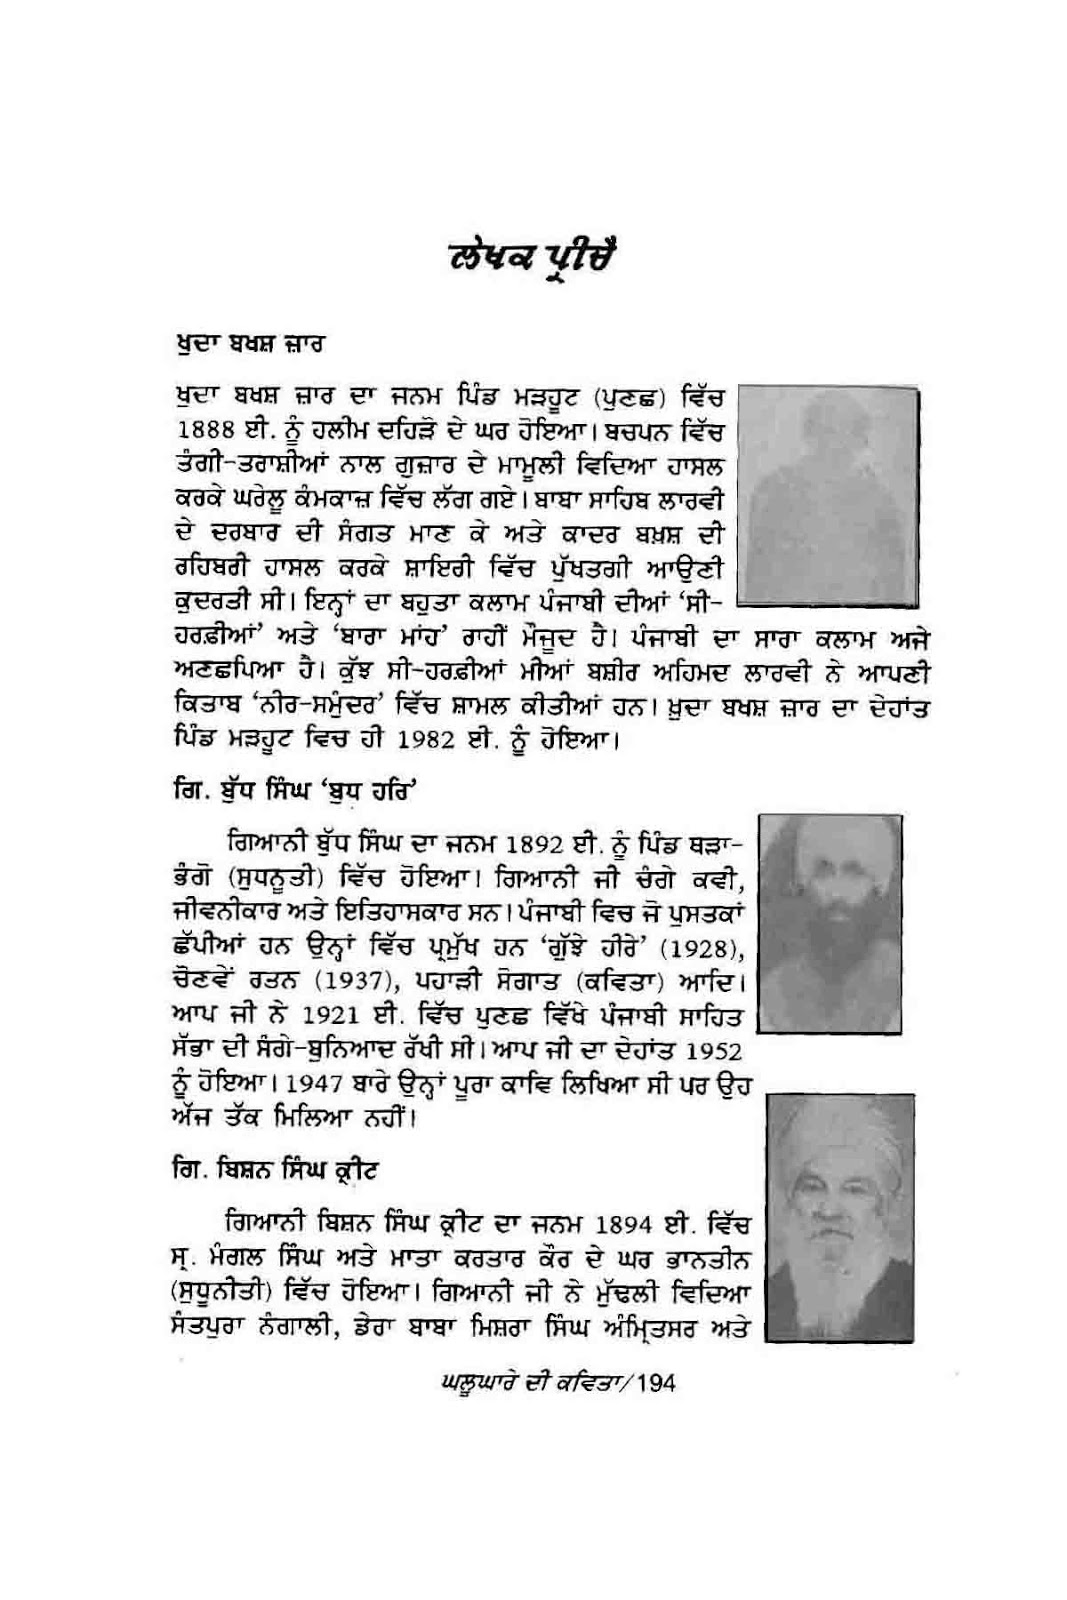 ਲੇਖਕ ਪ੍ਰੀਚੈ
ਖੁਦਾ ਬਖਸ਼ ਜ਼ਾਰ
ਖੁਦਾ ਬਖਸ਼ ਜ਼ਾਰ ਦਾ ਜਨਮ ਪਿੰਡ ਮੜਹੂਟ (ਪੁਣਛ) ਵਿੱਚ
1888 ਈ. ਨੂੰ ਹਲੀਮ ਦਹਿੜੋ ਦੇ ਘਰ ਹੋਇਆ। ਬਚਪਨ ਵਿੱਚ
ਤੰਗੀ-ਤਰਾਸ਼ੀਆਂ ਨਾਲ ਗੁਜ਼ਾਰ ਦੇ ਮਾਮੂਲੀ ਵਿਦਿਆ ਹਾਸਲ
ਕਰਕੇ ਘਰੇਲੂ ਕੰਮਕਾਜ਼ ਵਿੱਚ ਲੱਗ ਗਏ। ਬਾਬਾ ਸਾਹਿਬ ਲਾਰਵੀ
ਦੇ ਦਰਬਾਰ ਦੀ ਸੰਗਤ ਮਾਣ ਕੇ ਅਤੇ ਕਾਦਰ ਬਖ਼ਸ਼ ਦੀ
ਰਹਿਬਰੀ ਹਾਸਲ ਕਰਕੇ ਸ਼ਾਇਰੀ ਵਿੱਚ ਪੁੱਖਤਗੀ ਆਉਣੀ
ਕੁਦਰਤੀ ਸੀ। ਇਨ੍ਹਾਂ ਦਾ ਬਹੁਤਾ ਕਲਾਮ ਪੰਜਾਬੀ ਦੀਆਂ ‘ਸੀ-
ਹਰਫ਼ੀਆਂ’ ਅਤੇ ‘ਬਾਰਾ ਮਾਂਹ’ ਰਾਹੀਂ ਮੌਜੂਦ ਹੈ। ਪੰਜਾਬੀ ਦਾ ਸਾਰਾ ਕਲਾਮ ਅਜੇ
ਅਣਛਪਿਆ ਹੈ। ਕੁੱਝ ਸੀ-ਹਰਫ਼ੀਆਂ ਮੀਆਂ ਬਸ਼ੀਰ ਅਹਿਮਦ ਲਾਰਵੀ ਨੇ ਆਪਣੀ
ਕਿਤਾਬ ‘ਨੀਰ-ਸਮੁੰਦਰ’ ਵਿੱਚ ਸ਼ਾਮਲ ਕੀਤੀਆਂ ਹਨ। ਖ਼ੁਦਾ ਬਖਸ਼ ਜ਼ਾਰ ਦਾ ਦੇਹਾਂਤ
ਪਿੰਡ ਮੜਹੂਟ ਵਿਚ ਹੀ 1982 ਈ. ਨੂੰ ਹੋਇਆ।
ਗਿ. ਬੁੱਧ ਸਿੰਘ ‘ਬੁਧ ਹਰਿ’
ਗਿਆਨੀ ਬੁੱਧ ਸਿੰਘ ਦਾ ਜਨਮ 1892 ਈ. ਨੂੰ ਪਿੰਡ ਥੜਾ-
ਭੰਗੋ (ਸੁਧਨੂਤੀ) ਵਿੱਚ ਹੋਇਆ। ਗਿਆਨੀ ਜੀ ਚੰਗੇ ਕਵੀ,
ਜੀਵਨੀਕਾਰ ਅਤੇ ਇਤਿਹਾਸਕਾਰ ਸਨ। ਪੰਜਾਬੀ ਵਿਚ ਜੋ ਪੁਸਤਕਾਂ
ਛੱਪੀਆਂ ਹਨ ਉਨ੍ਹਾਂ ਵਿੱਚ ਪ੍ਰਮੁੱਖ ਹਨ ‘ਗੁੱਝੇ ਹੀਰੇ’ (1928),
ਚੋਣਵੇਂ ਰਤਨ (1937), ਪਹਾੜੀ ਸੋਗਾਤ (ਕਵਿਤਾ) ਆਦਿ।
ਆਪ ਜੀ ਨੇ 1921 ਈ. ਵਿੱਚ ਪੁਣਛ ਵਿੱਖੇ ਪੰਜਾਬੀ ਸਾਹਿਤ
ਸੱਭਾ ਦੀ ਸੰਗੇ-ਬੁਨਿਆਦ ਰੱਖੀ ਸੀ। ਆਪ ਜੀ ਦਾ ਦੇਹਾਂਤ 1952
ਨੂੰ ਹੋਇਆ। 1947 ਬਾਰੇ ਉਨ੍ਹਾਂ ਪੂਰਾ ਕਾਵਿ ਲਿਖਿਆ ਸੀ ਪਰ ਉਹ
ਅੱਜ ਤੱਕ ਮਿਲਿਆ ਨਹੀਂ।
ਗਿ. ਬਿਸ਼ਨ ਸਿੰਘ ਕ੍ਰੀਟ
ਗਿਆਨੀ ਬਿਸ਼ਨ ਸਿੰਘ ਕ੍ਰੀਟ ਦਾ ਜਨਮ 1894 ਈ. ਵਿੱਚ
ਸ੍ਰ. ਮੰਗਲ ਸਿੰਘ ਅਤੇ ਮਾਤਾ ਕਰਤਾਰ ਕੌਰ ਦੇ ਘਰ ਭਾਨਤੀਨ
(ਸੁਧੂਨੀਤੀ) ਵਿੱਚ ਹੋਇਆ। ਗਿਆਨੀ ਜੀ ਨੇ ਮੁੱਢਲੀ ਵਿਦਿਆ
ਸੰਤਪੁਰਾ ਨੰਗਾਲੀ, ਡੇਰਾ ਬਾਬਾ ਮਿਸ਼ਰਾ ਸਿੰਘ ਅੰਮ੍ਰਿਤਸਰ ਅਤੇ
ਘਲੂਘਾਰੇ ਦੀ ਕਵਿਤਾ/194